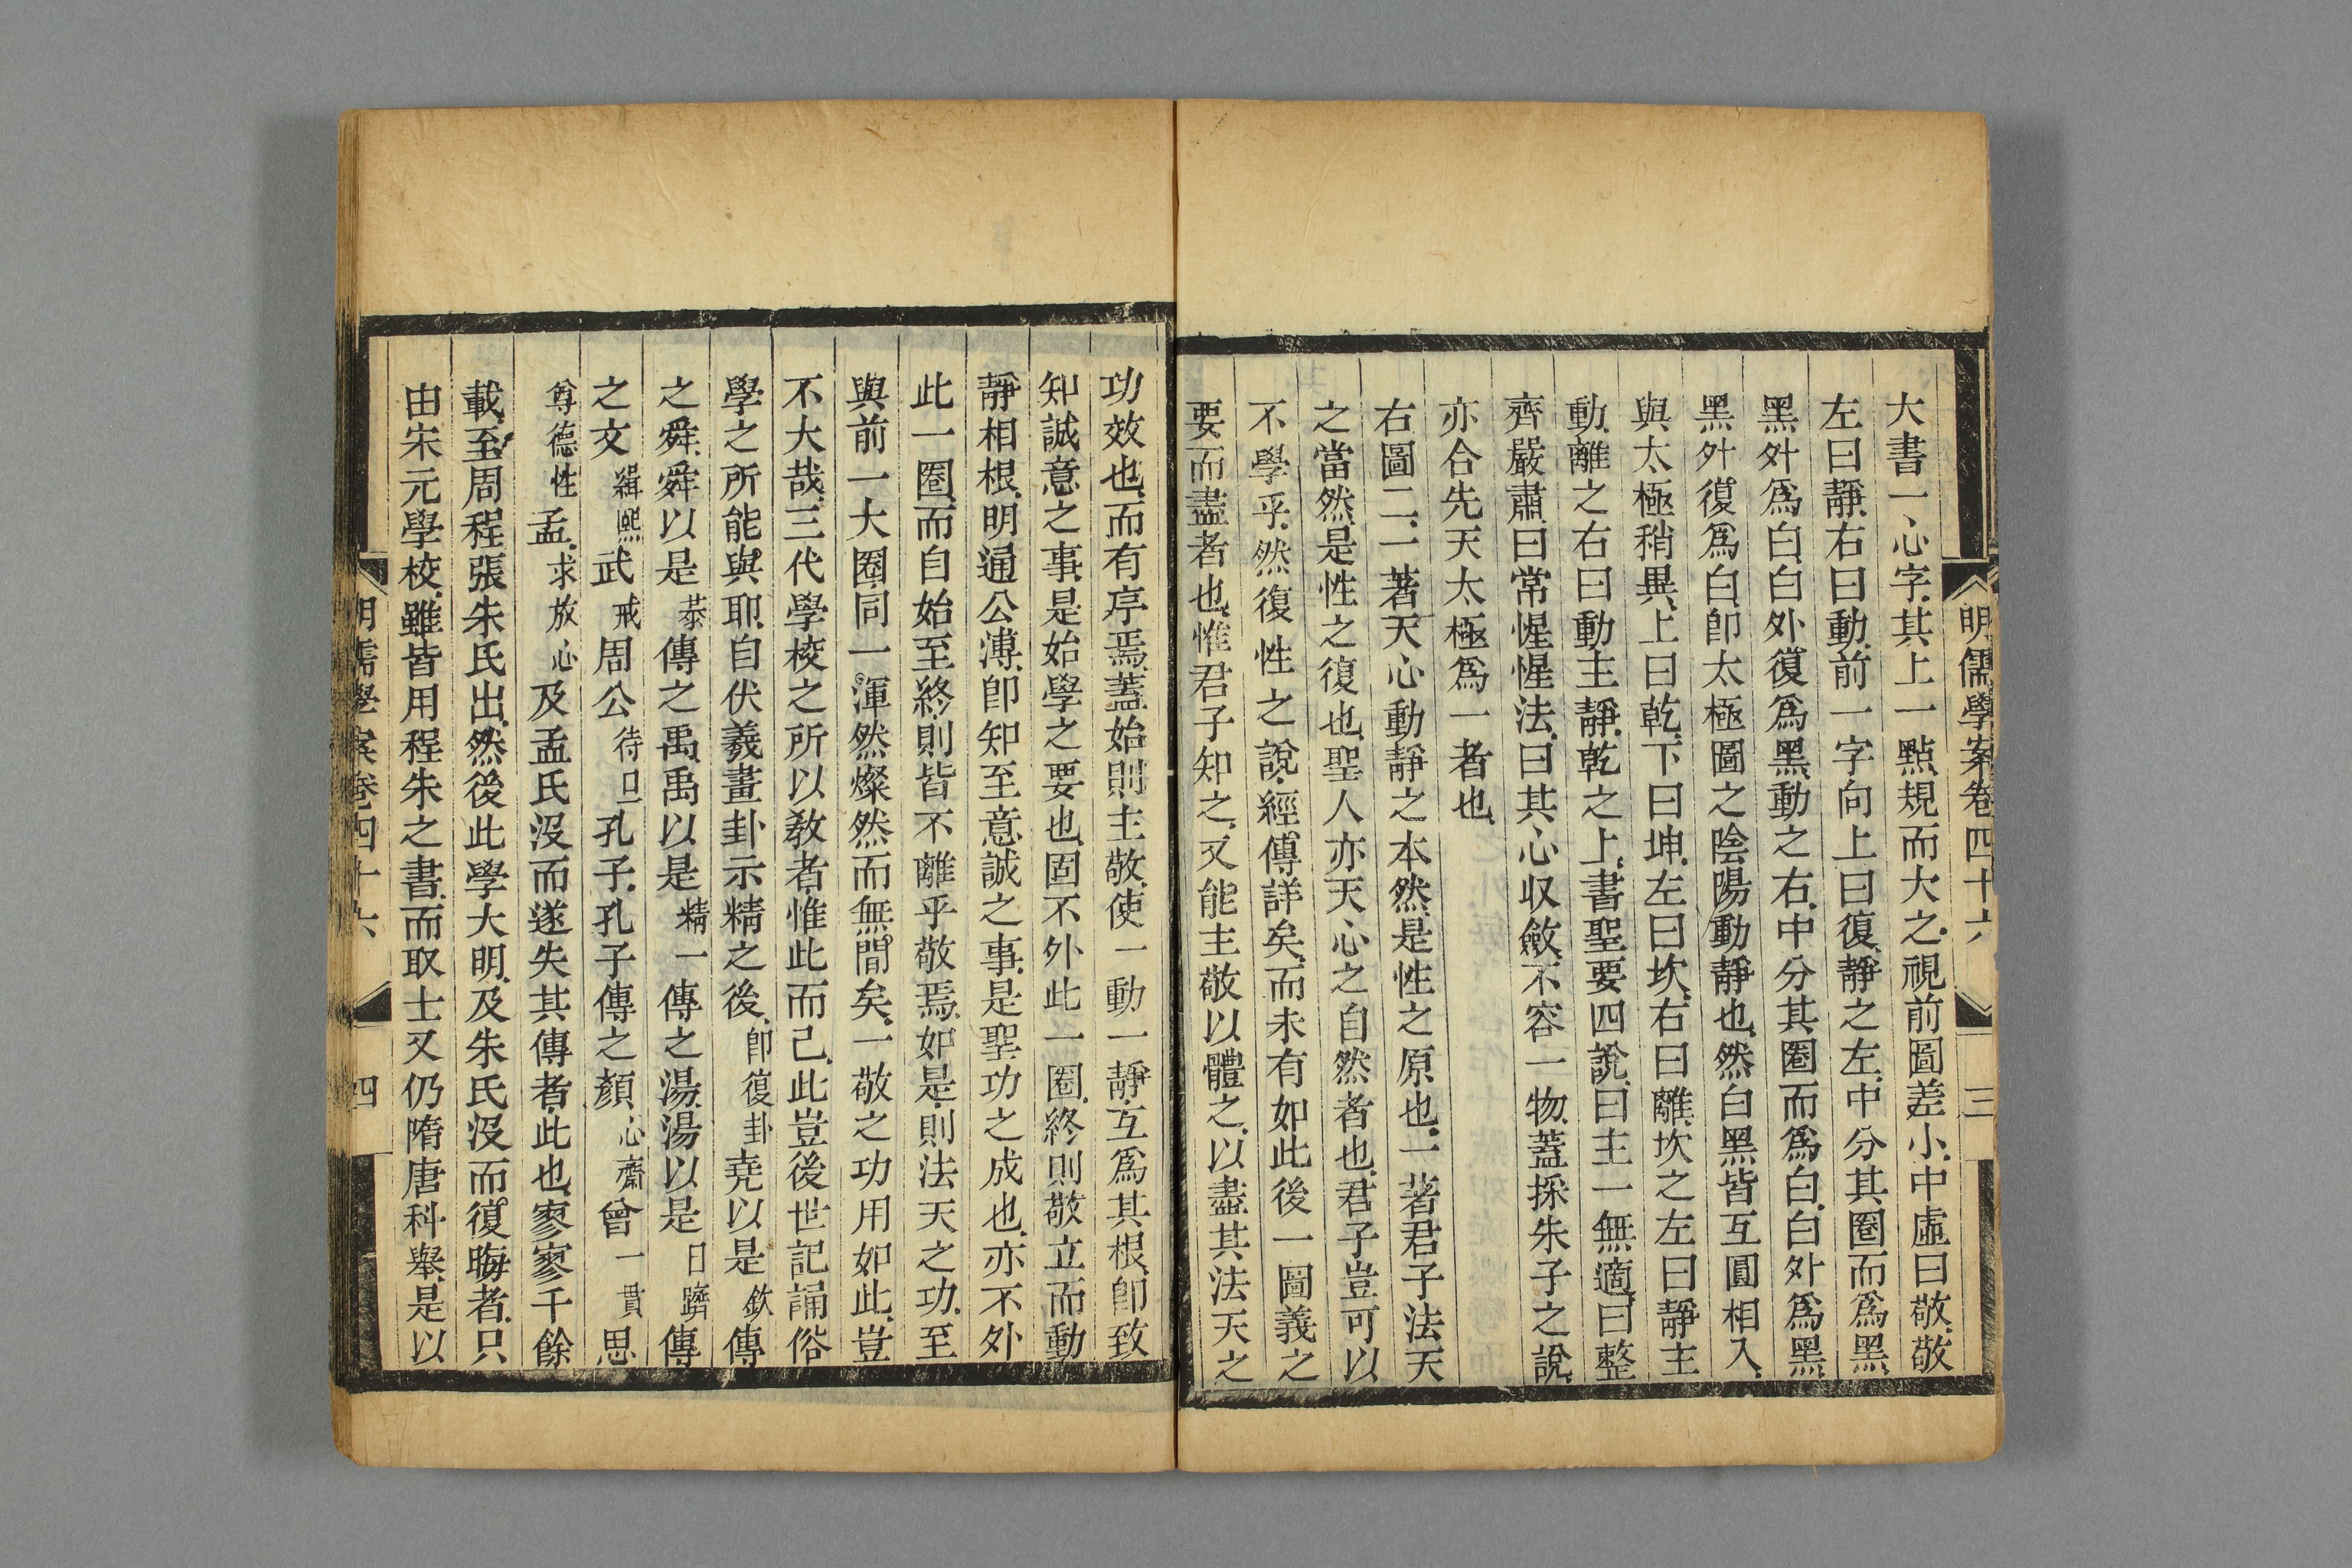 明儒學案卷四十六 三
大書一心字其上一點規而大之視前圖差小中虛曰敬敬
左曰靜右曰動前一字向上曰復靜之左中分其圈而爲黑
黑外爲白白外復爲黑動之右中分其圈而爲白白外爲黑
黑外復爲白卽太極圖之陰陽動靜也然白黑皆互圓相入
與太極稍異上曰乾下曰坤左曰坎右曰離坎之左曰靜主
動離之右曰動主靜乾之上書聖要四說曰主一無適曰整
齊嚴肅曰常惺惺法曰其心収斂不容一物蓋採朱子之說
亦合先天太極爲一者也
右圖二一著天心動靜之本然是性之原也一著君子法天
之當然是性之復也聖人亦天心之自然者也君子豈可以
不學乎然復性之說經傳詳矣而未有如此後一圖義之
要而盡者也惟君子知之又能主敬以體之以盡其法天之
功效也而有序焉蓋始則主敬使一動一靜互爲其根卽致
知誠意之事是始學之要也固不外此一圈終則敬立而動
靜相根明通公溥卽知至意誠之事是聖功之成也亦不外
此一圈而自始至終則皆不離乎敬焉如是則法天之功至
與前一大圈同一渾然燦然而無間矣一敬之功用如此豈
不大哉三代學校之所以敎者惟此而已此豈後世記誦俗
學之所能與耶自伏羲畫卦示精之後卽復卦堯以是欽傳
之舜舜以是恭傳之禹禹以是精一傳之湯湯以是日躋傳
之文緝熙武戒周公待旦孔子孔子傳之顏心齋曾一貫思
尊德性孟求放心及孟氏沒而遂失其傳者此也寥寥千餘
載至周程張朱氏出然後此學大明及朱氏沒而復晦者只
由宋元學校雖皆用程朱之書而取士又仍隋唐科舉是以
明儒學案卷四十六 四